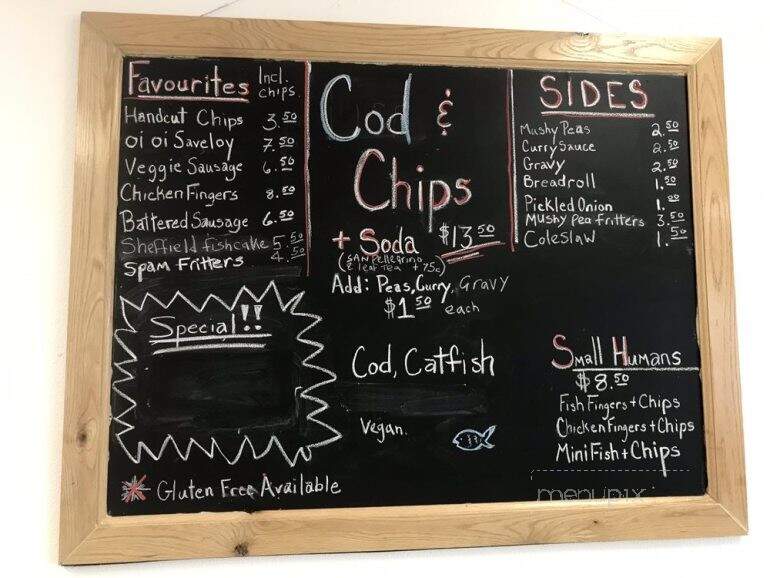 Favourites Incl. chips
Handcut Chips 3.50
oi oi Saveloy 7.50
Veggie Sausage 6.50
Chicken Fingers 8.50
Battered Sausage 6.50
Sheffield fishcake 5.50
Spam Fritters 4.50
Special!!
Gluten Free Available
Cod &
Chips
+ Soda $13.50
(San Pellegrino
& leaf Tea +75c)
Add: Peas, Curry, Gravy
$1.50 each
Cod, Catfish
Vegan.
SIDES
Mushy Peas 2.50
Curry Sauce 2.50
Gravy 2.50
Breadroll 1.50
Pickled Onion 1.00
Mushy pea fritters 3.50
Coleslaw 1.50
Small Humans
$8.50
Fish Fingers + Chips
Chicken Fingers + Chips
Mini Fish + Chips
menupix